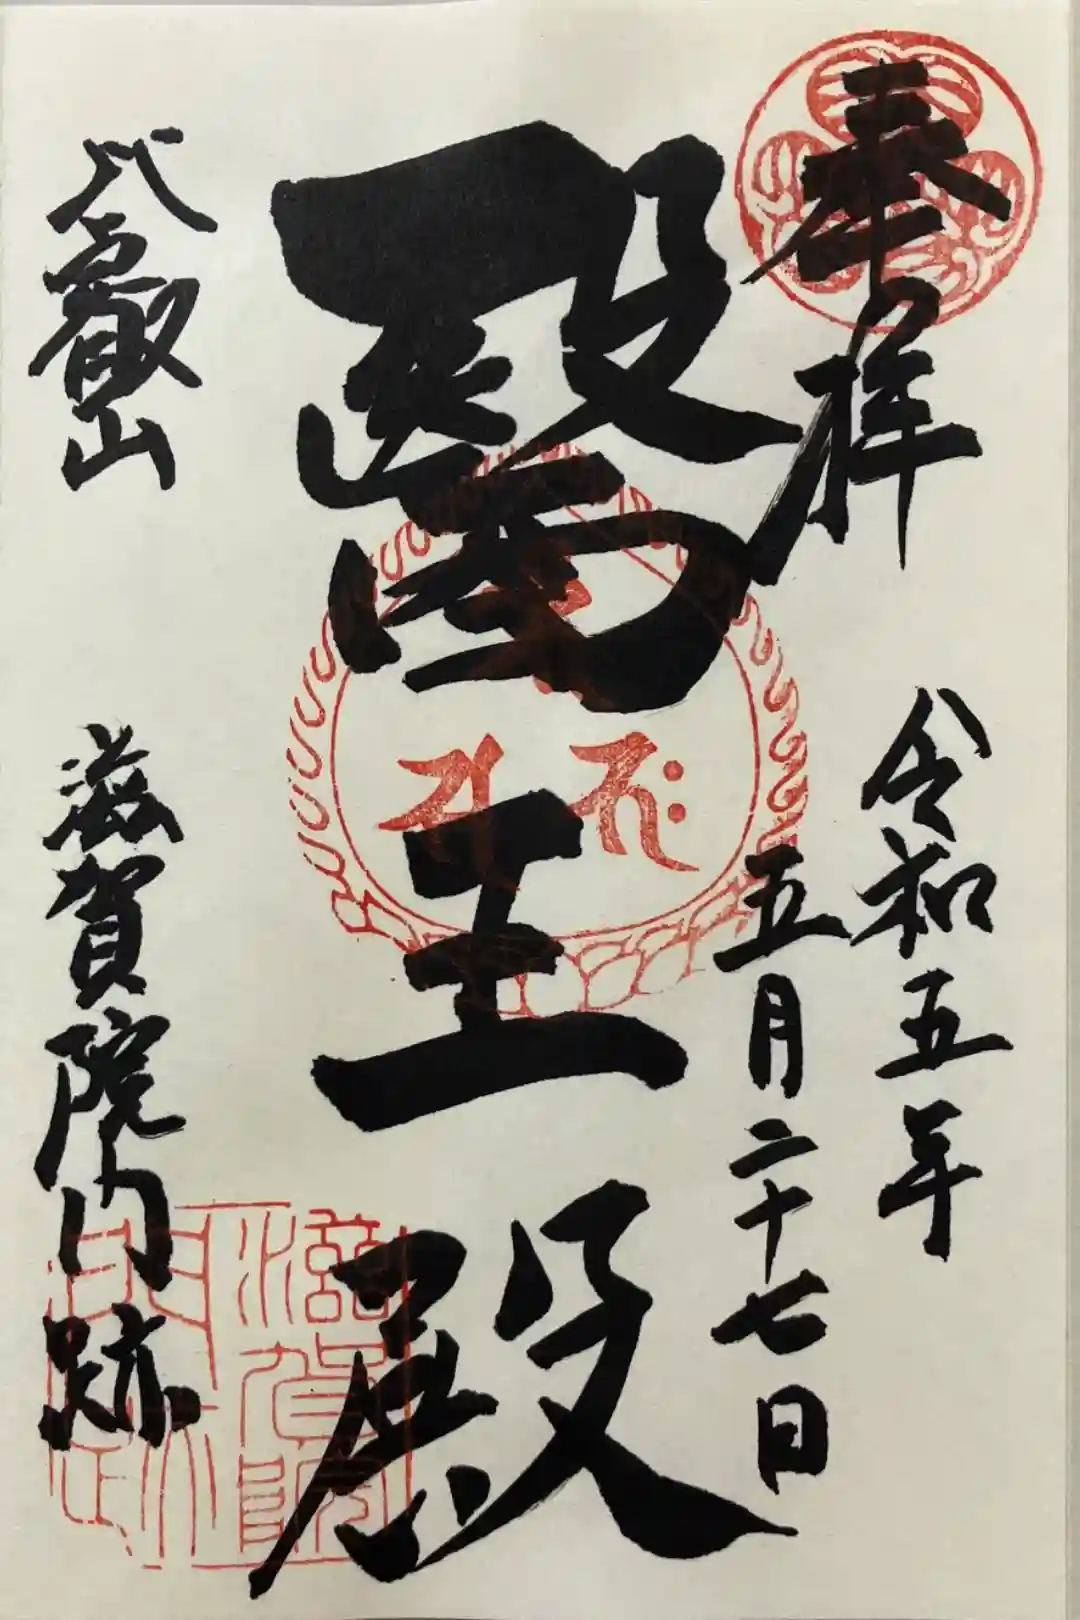 奉拝
令和五年
五月二十七日
醫王殿
比叡山
滋賀院門跡
滋賀院
門跡